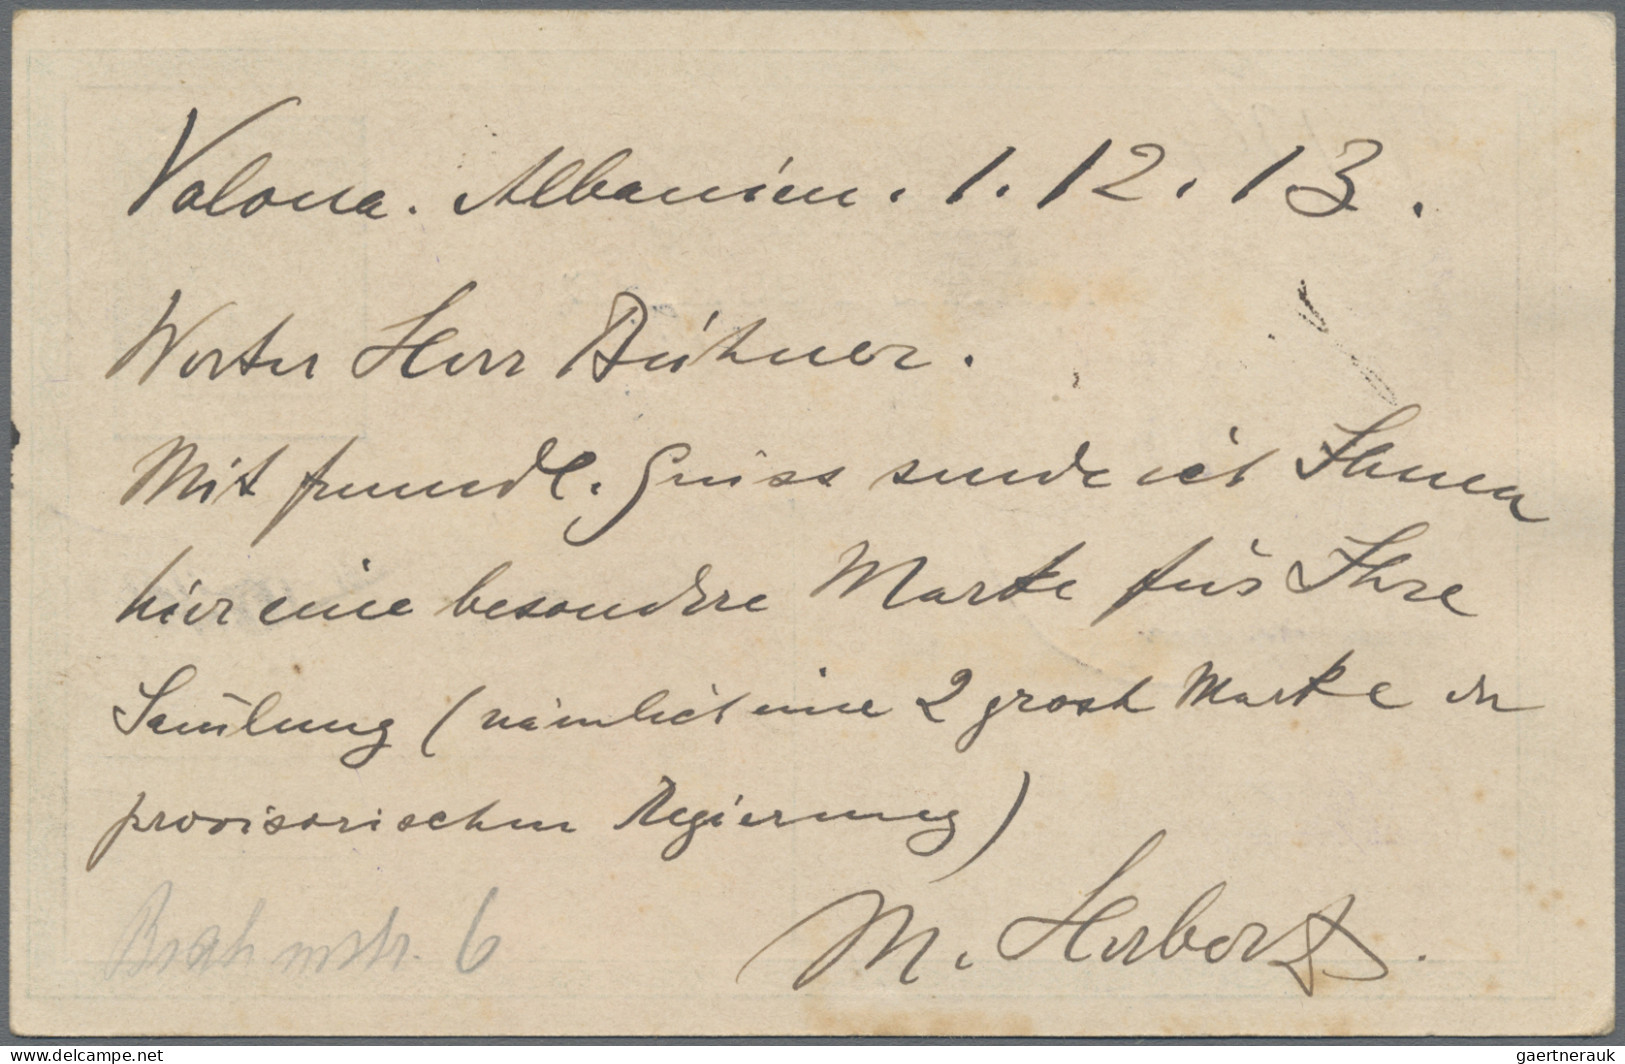 Valona. Albanien. 1. 12. 13.
Werter Herr Bühner.
Mit freundl. Gruss sende ich Ihnen
hier eine besondere Marke für Ihre
Sam̅lung (nämlich eine 2 grosh Marke der
provisorischen Regierung)
M. Herbert.
Brahmstr. 6
delcampe.net
gaertnerauk